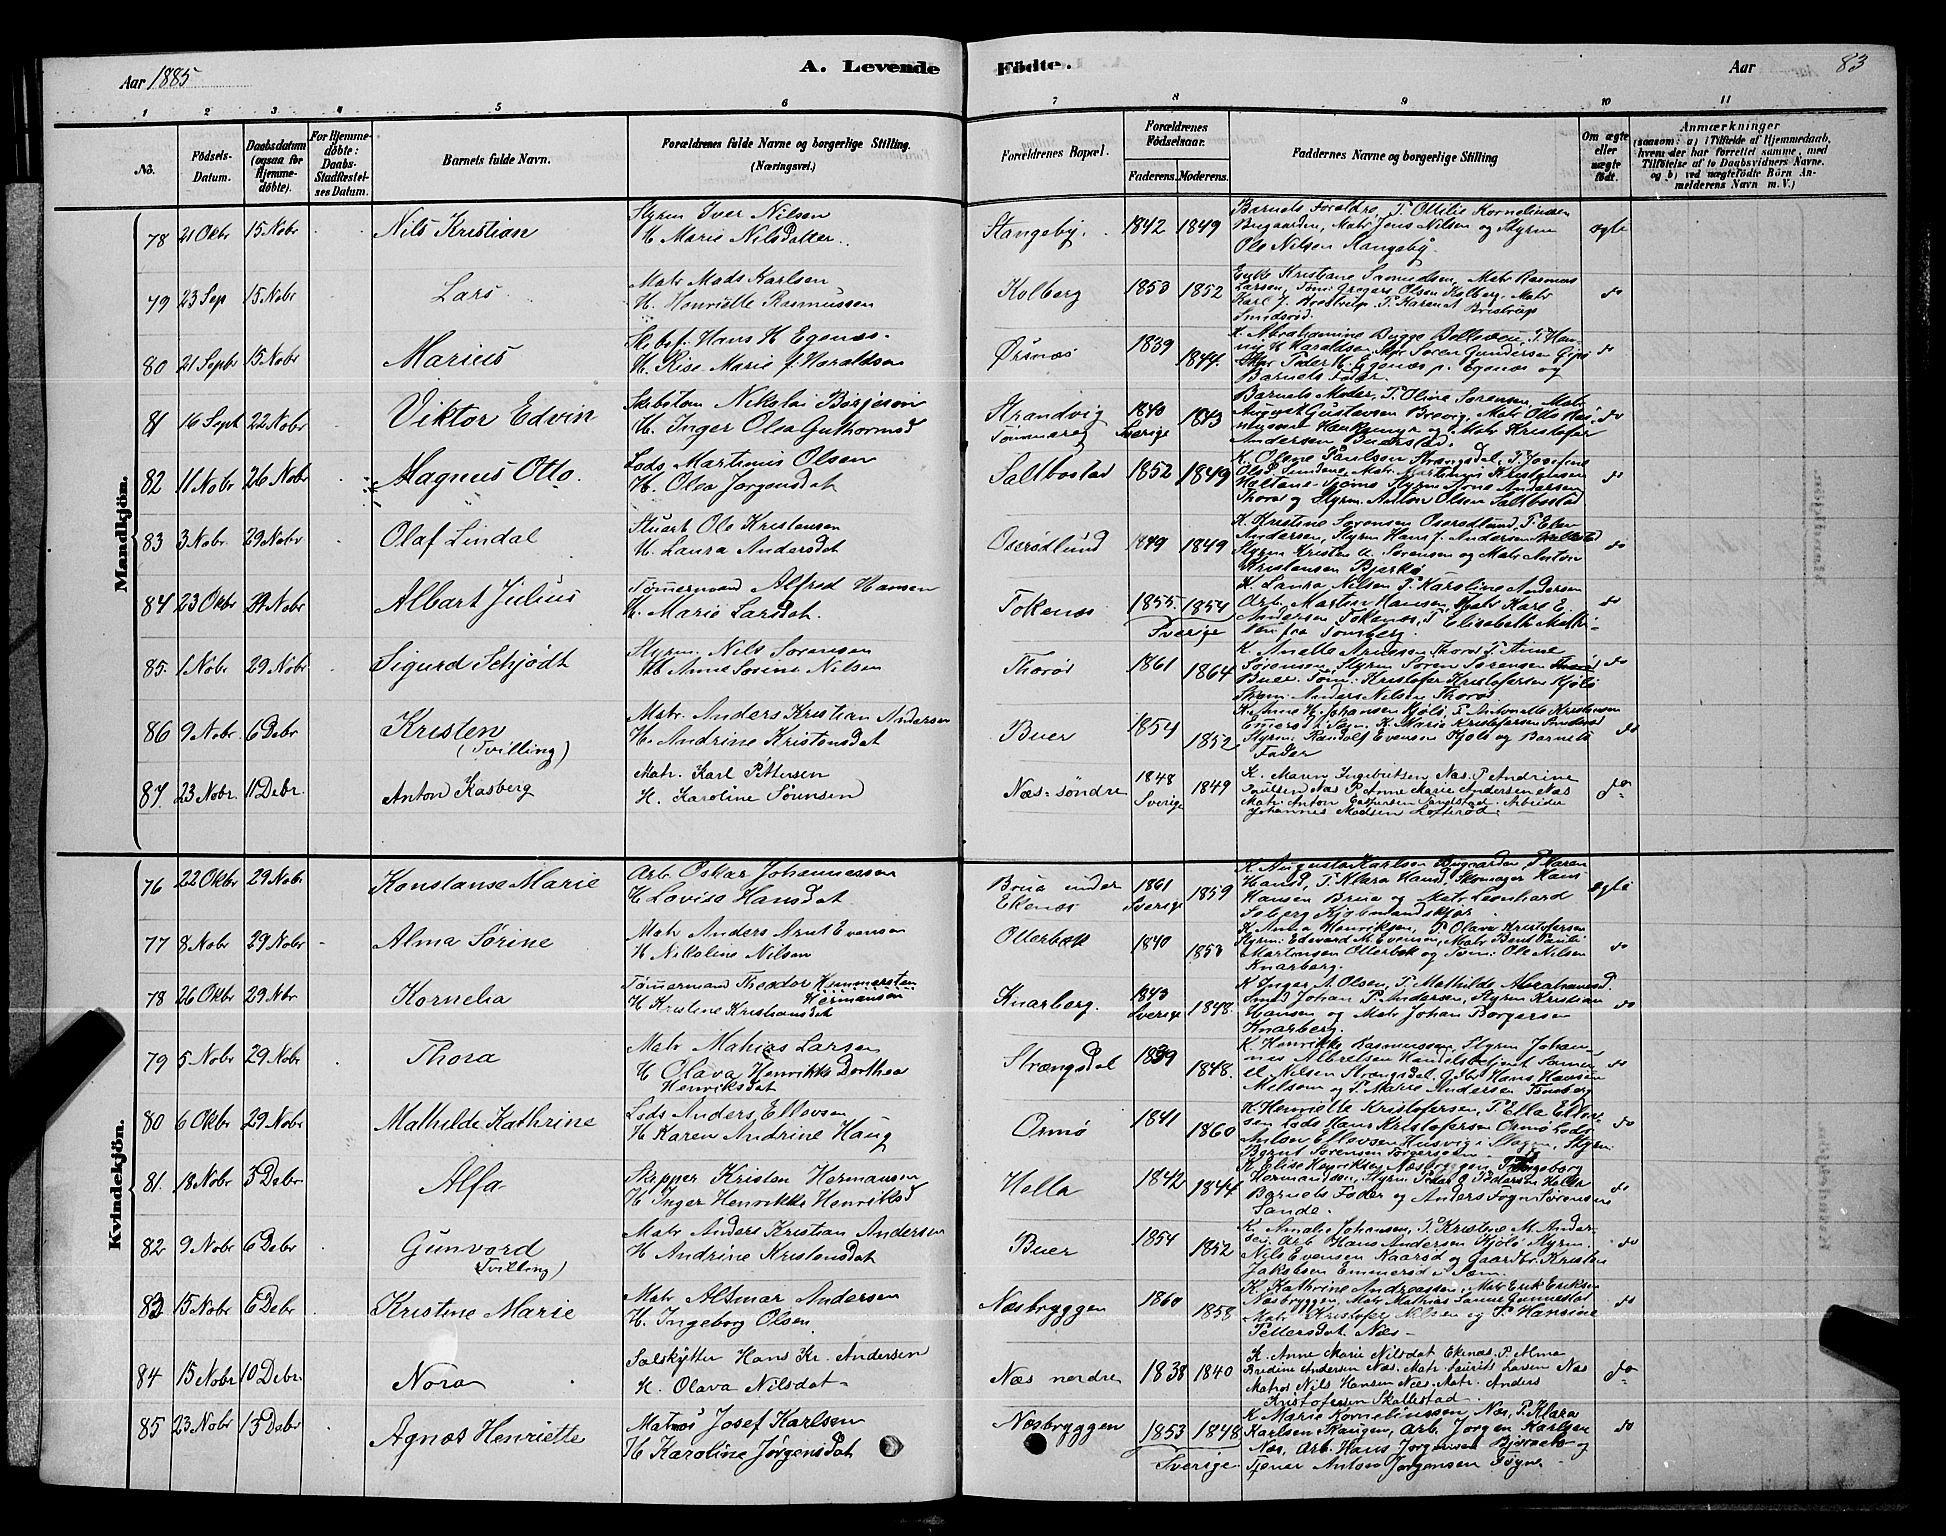 Aar 1885
A. Levende Födte.
Aar
83
1 2 3 4 5 6 7 8 9 10 11
No.
Födsels-Datum.
Daabsdatum (ogsaa for Hjemme-döbte).
For Hjemme-döbte: Daabs-Stadfæstelses Datum.
Barnets fulde Navn.
Forældrenes fulde Navne og borgerlige Stilling. (Næringsvei.)
Forældrenes Bopæl.
Forældrenes Födselsaar.
Faderens. Moderens.
Faddernes Navne og borgerlige Stilling
Om ægte eller uægte födt.
Anmærkninger
(saasom: a) i Tilfælde af Hjemmedaab, hvem der har forrettet samme, med Tilföielse af to Daabsvidners Navne. og b) ved uægtefödte Börn Anmelderens Navn m. V.)
Mandkjön.
78 21 Oktr 15 Nobr Nils Kristian
Styrm Iver Nilsen
H. Marie Nilsdatter.
Stangeby. 1842 1849
Barnets Foraldre, P. Ottilie Kornelinssen
Bugaarden, Matr Jens Nilsen og Styrm
Ole Nilsen Stangeby.
ægte
79 23 Sep 15 Nobr Lars
Matr Mads Karlsen
H. Henriette Rasmussen
Kolberg 1853 1852
Enke Kristiane Samuelsen, Matr Rasmus
Larsen, Töm: Gregers Olsen Kolberg, Matr
do
80 21 Septbr 15 Nobr Marius
Skibsf. Hans H Egenæs
H. Rise Marie J. Haraldsen
Örsnæs 1839 1844.
Barnets Fader.
do
81 16 Sept 22 Nobr Viktor Edvin
Skibstøm Nikolai Börjeson
H. Inger Olea Guthormsd
Strandvig Tömmereg 1840 Sverige 1843
Barnets Moder, P. Oline Sörensen, Matr
August Gustavsen Brevig, Matr Otto
do
82 11 Nobr 26 Nobr Magnus Otto.
Lods Martinius Olsen
H. Olea Jörgensdat
Saltbostad 1852 1849
K. Olene Paulsen Strængsdal, P. Josefine
Thorød og Styrm. Anton Olsen Saltbostad
do
83 3 Nobr. 29 Nobr Olaf Lindal
Stuart Ole Kristensen
H. Laura Andersdat
Oserødlund 1849 1849
K. Kristine Sørensen Oserødlund, P. Elen
Andersen, Styrm Hans J. Andersen
Styrm Kristen A. Sörensen og Matr Anton
Kristensen Bjerkø
do
84 23 Oktr 29 Nobr Albart Julius
Tømermand Alfred Hansen
H. Marie Larsdat.
Tokenæs 1855. 1854 Sverige
H. Laura Nilsen P. Karoline Andersen
Arb. Martin Hansen, Matr Karl E.
Andersen Tokenæs, P. Elisabeth
fra Tønsberg.
do
85. 1 Nobr 29 Nobr Sigurd Schjödt
Styrm. Nils Sørensen
H. Anne Sorine Nilsen
Thorød 1861 1864
K. Anette Arnesen Thorød P. Anne
Sørensen, Styrm Søren Sørensen
Buer. Töm: Kristofer Kristofersen Kjölö
Skom. Anders Nilsen Thorød
do
86 9 Nobr. 6 Debr Kristen (Tvilling)
Matr. Anders Kristian Andersen
H. Andrine Kristensdat
Buer 1854 1852
K. Anne H. Johansen Kjølø, P. Antonette Kristensen
Styrm. Randolf Evensen Kjölö og Barnets
Fader
do
87 23 Nobr. 11 Debr. Anton Kasberg
Matr. Karl Pettersen
H. Karoline Sörensen
Næs-söndre 1848 Sverige 1849
K. Maren Ingebritsen Næs. P. Andrine
Paulsen Næs P. Anne Marie Andersen Næs
Matr. Anton Caspersen Sandstad. Arbeider
Johannes Madsen Lofterød
do
Kvindekjön.
76 22 Oktr 29 Nobr Konstanse Marie
Arb Oskar Johannessen
H Lovise Hansdat.
Brua under Ekenæs 1861 Sverige 1859
K. Augusta Karlsen Bugaarden, P. Karen
Hansd, P. Klara Hansd, Skomager Hans
Hansen Brua og Matr Leonhard
ægte
77 8 Nobr 29 Nobr Alma Sörine
Matr Anders Arnt Evensen
H Nikoline Nilsen
Otterbæk 1840 1853
K. Anna Henriksen, P. Olava Kristofersen
Styrm: Edevard M. Evensen, Matr Bent Pauli
Martinsen Otterbæk og Töm: Ole Nilsen
Knarberg.
do
78 26 Oktr 29 Nbr Kornelia
Tömermand Theodor Hammersten Hermansen
H Kristine Kristiansdat
Knarberg. 1843 Sverige 1848.
K Inger A. Olsen, P. Mathilde Abrahamsd.
Smed Johan P. Andersen, Styrm Kristian
Hansen og Matr Johan Borgersen
Knarberg.
do
79 5 Nobr 29 Nobr Thora
Matr Mathias Larsen
H Olava Henrikke Dorthea
Henriksdat
Strængsdal 1839 1848.
K. Henrikke Rasmussen, Styrm Johannes
Albretsen Handelsbetjent Samuel
Nilsen Strængsdal, Gdbr Hans Hansen
Melsom og P. Marie Andersen Tönsberg
do
80 6 Oktr 29 Nobr Mathilde Kathrine
Lods Anders Ellevsen
H Karen Andrine Haug
Ormø 1841 1860
K. Henriette Kristofersen, P. Ella Ellevsen
Lods Hans Kristofersen Ormø Lods
Anton Ellevsen Husvig i Slagen, Styrm
Bernt Sörensen
do
81. 18 Nobr 3 Debr Alfa
Skipper Kristen Hermansen
H Inger Henrikke Henriksd
Hella 1842 1844
K Elise Henriksen Næsbryggen P. Ingeborg
Hermansen, Styrm Peder O Pedersen Hella
Barnets Fader og Anders Fogn Sörensen
Sande.
do
82 9 Nobr 6 Debr Gunvord (Tvilling)
Matr Anders Kristian Andersen
H Andrine Kristensdat
Buer 1854 1852
K. Amalie Johansen, P. Kristine M. Andersen
Arb Hans Andersen Kjölö Styrm
Nils Evensen Kaarød og Gaardbr. Kristen
Jakobsen Emmerød i Sem.
do
83 15 Nobr 6 Debr Kristine Marie
Matr Altmar Andersen
H. Ingeborg Olsen
Næsbryggen 1860 1858
K. Kathrine Andreassen, Matr Erik Eriksen
Næsbryggen, Matr Mathias Sanne Gunnestad
Matr Kristofer Nilsen og P. Hansine
Pettersdat Næs
do
84 15 Nobr 10 Debr. Nora
Sælskytter Hans Kr. Andersen
H. Olava Nilsdat
Næs nordre 1838 1840
K. Anne Marie Nilsdat Ekenæs. P. Alma
Bredine Andersen Næs. Matr. Laurits Larsen Næs
Matros Nils Hansen Næs. Matr. Anders
Kristofersen Skallestad
do
85 23 Nobr 13 Debr Agnes Henriette
Matros Josef Karlsen
H Karoline Jørgensdat
Næsbryggen 1853 1848 Sverige
K. Marie Kornelinssen Næs, P. Klara
Karlsen Haugen, Arb. Jørgen Karlsen
Næs, Arb. Hans Jørgensen og
Tjener Anton Jørgensen
do